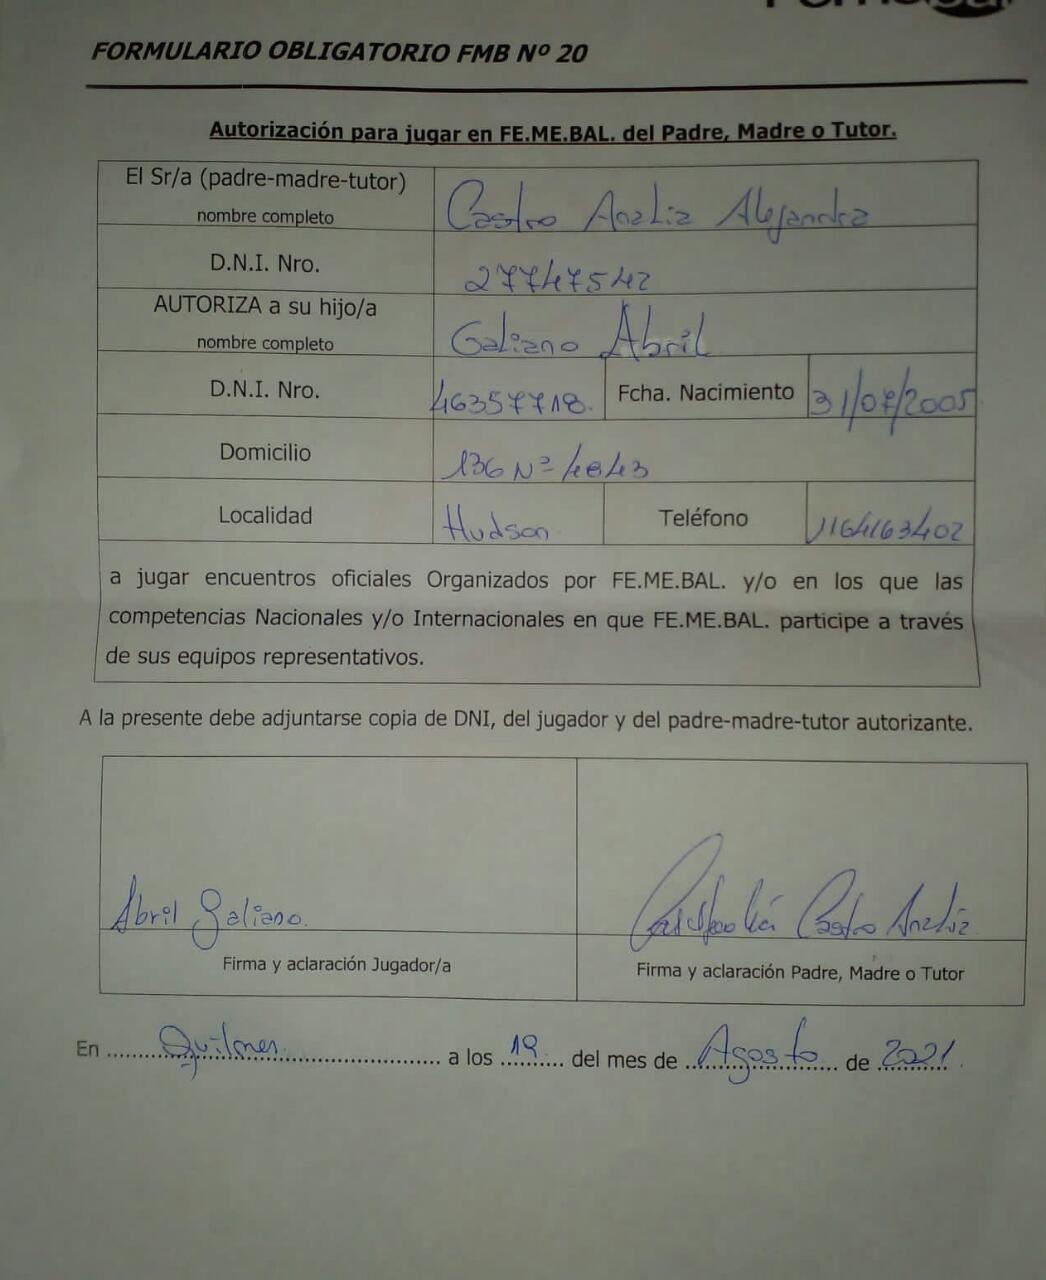 FORMULARIO OBLIGATORIO FMB Nº 20
Autorización para jugar en FE.ME.BAL. del Padre, Madre o Tutor.
El Sr/a (padre-madre-tutor) nombre completo Castro Analia Alejandra
D.N.I. Nro. 27747542
AUTORIZA a su hijo/a nombre completo Galiano Abril
D.N.I. Nro. 46357718. Fcha. Nacimiento 31/07/2005
Domicilio 136 Nº 4843
Localidad Hudson Teléfono 1164163402
a jugar encuentros oficiales Organizados por FE.ME.BAL. y/o en los que las
competencias Nacionales y/o Internacionales en que FE.ME.BAL. participe a través
de sus equipos representativos.
A la presente debe adjuntarse copia de DNI, del jugador y del padre-madre-tutor autorizante.
Abril Galiano. Castro Analia
Firma y aclaración Jugador/a Firma y aclaración Padre, Madre o Tutor
En Quilmes a los 19 del mes de Agosto de 2021.